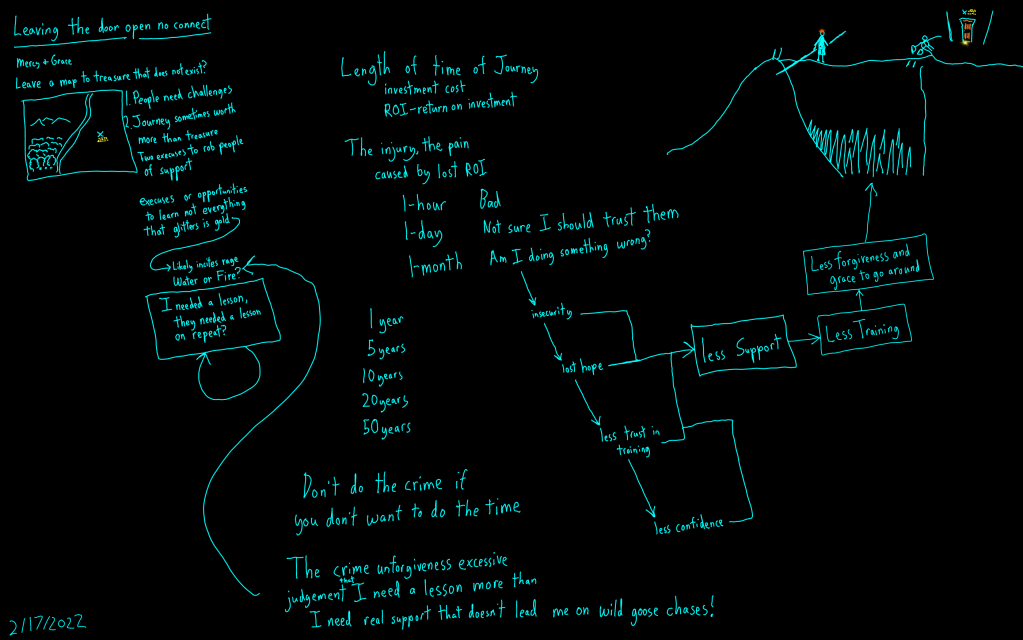 Leaving the door open no connect
Mercy + Grace
Leave a map to treasure that does not exist?
1. People need challenges
2. Journey sometimes worth
more than treasure
Two execuses to rob people
of support
execuses or opportunities
to learn not everything
that glitters is gold
Likely incites rage
Water or Fire?
I needed a lesson,
they needed a lesson
on repeat?
Length of time of Journey
investment cost
ROI-return on investment
The injury, the pain
caused by lost ROI
1-hour Bad
1-day Not sure I should trust them
1-month Am I doing something wrong?
1 year
5 years
10 years
20 years
50 years
insecurity
lost hope
less trust in
training
less confidence
less Support
Less Training
Less forgiveness and
grace to go around
Don't do the crime if
you don't want to do the time
The crime unforgiveness excessive
judgement that I need a lesson more than
I need real support that doesn't lead me on wild goose chases!
2/17/2022